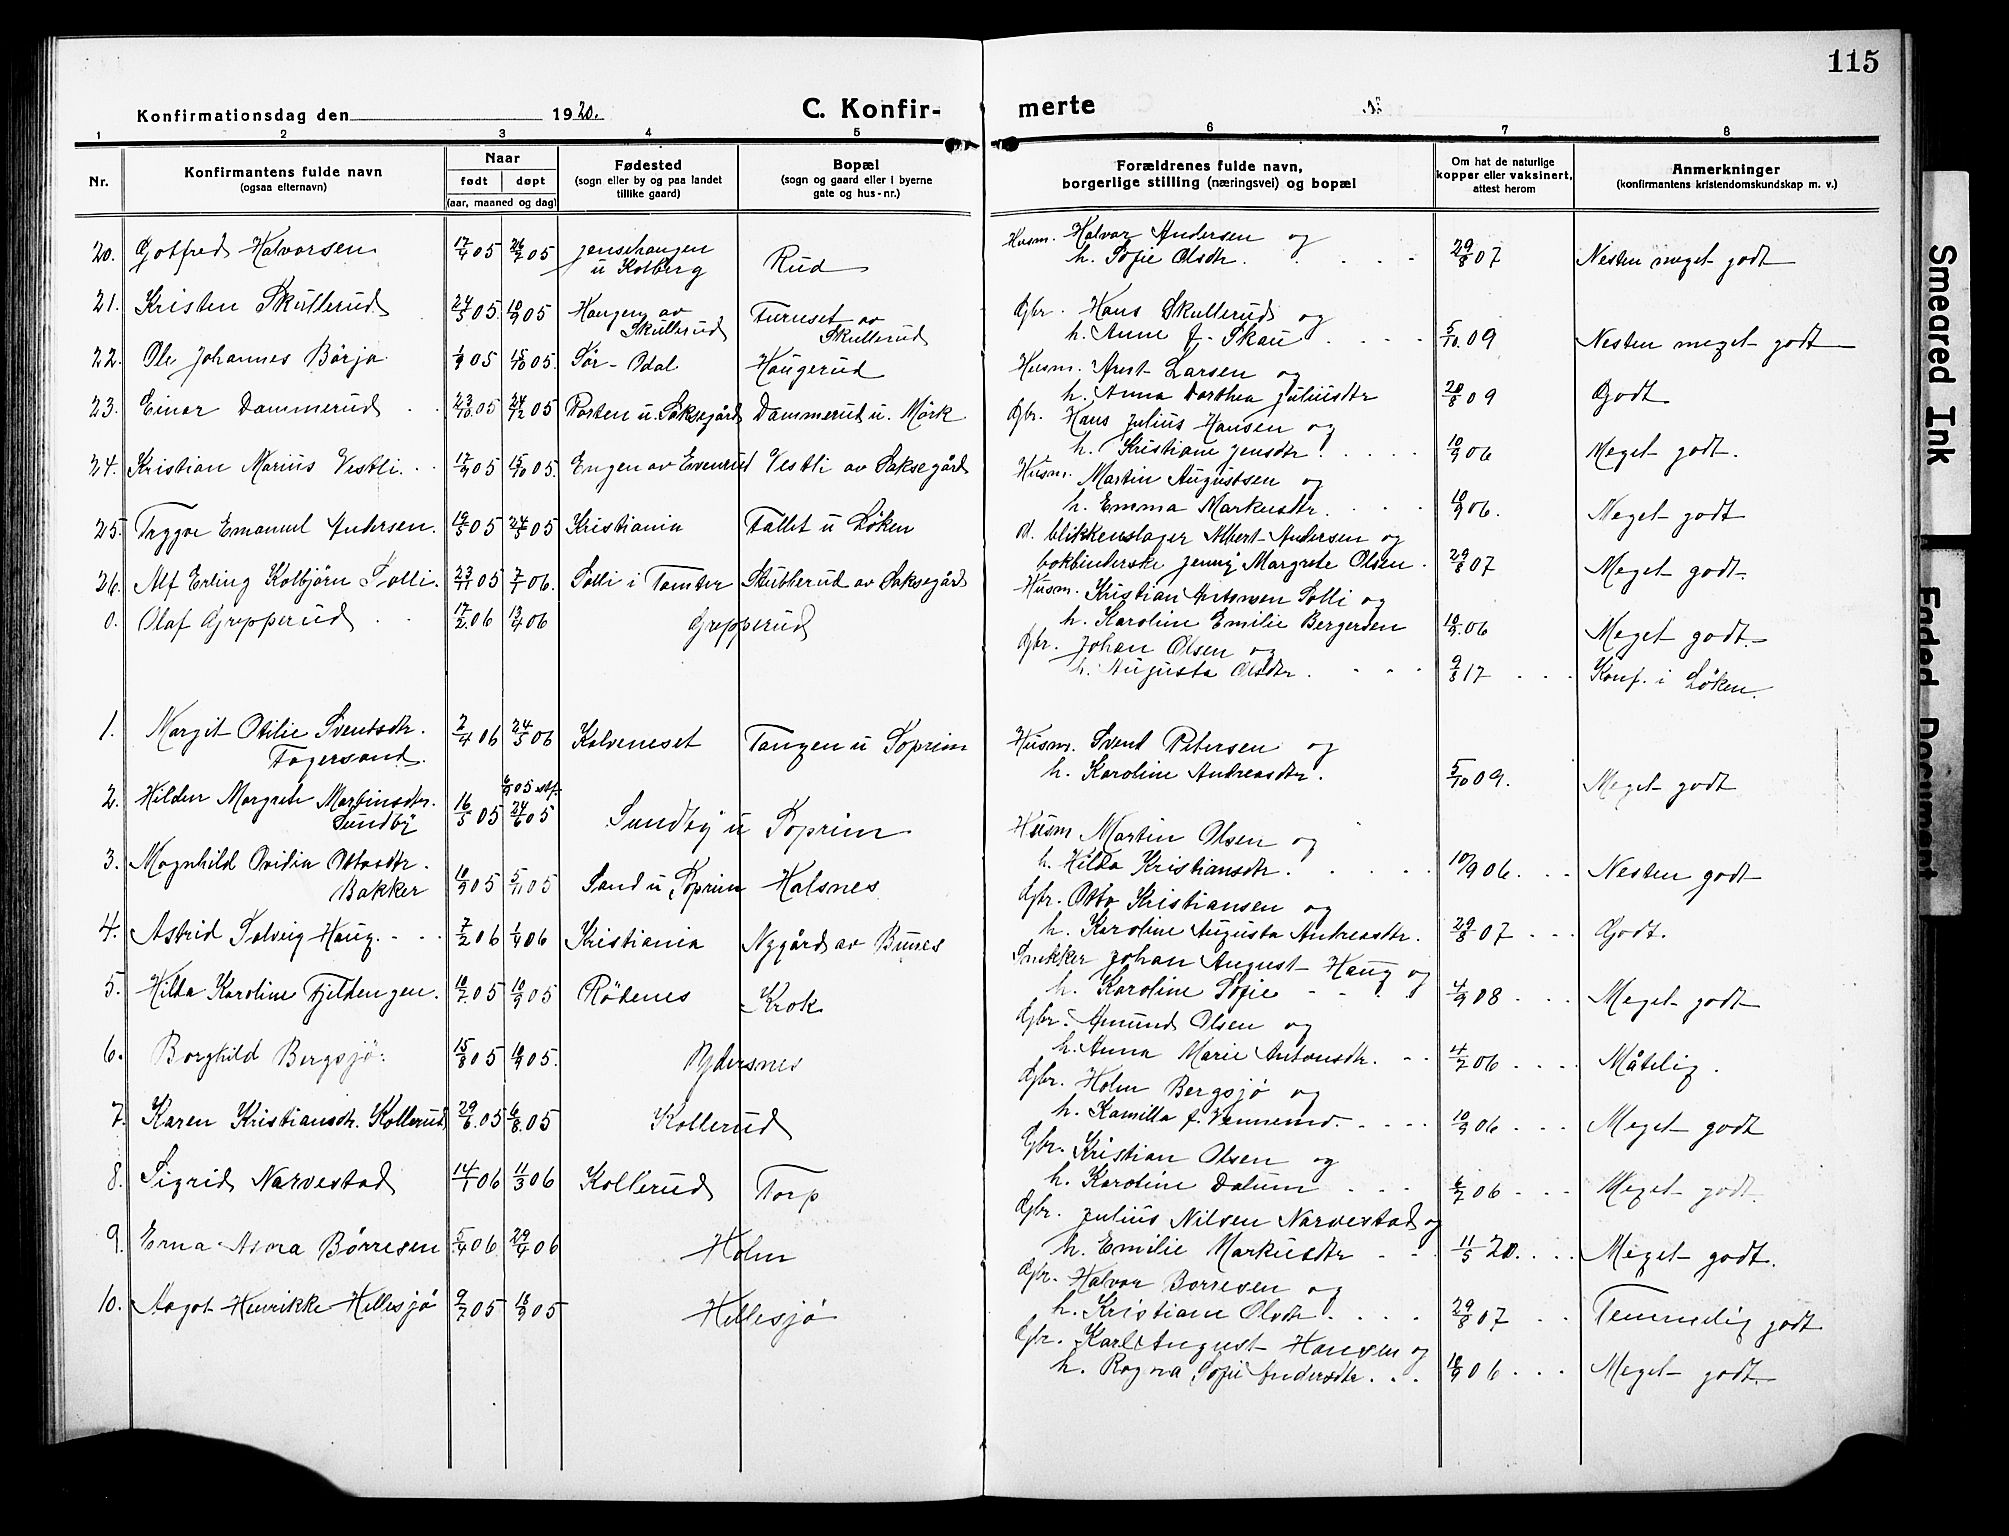 115
Konfirmationsdag den 1920.
C. Konfir-
merte
1 2 3 4 5 6 7 8
Nr.
Konfirmantens fulde navn
(ogsaa efternavn)
Naar
født døpt
(aar, maaned og dag)
Fødested
(sogn eller by og paa landet
tillike gaard)
Bopæl
(sogn og gaard eller i byerne
gate og hus-nr.)
Forældrenes fulde navn,
borgerlige stilling (næringsvei) og bopæl
Om hat de naturlige
kopper eller vaksinert,
attest herom
Anmerkninger
(konfirmantens kristendomskundskap m. v.)
20. Gotfred Halvorsen 17/4 05 26/2 05 Jensehaugen
u Kolberg Rud
Husm. Halvor Andersen og
h. Sofie Olsdtr. 29/8 07 Nesten meget godt
21. Kristen Skullerud 24/5 05. 10/9 05 Haugen av
Skullerud Furuset av
Skullerud
Gbr. Hans Skullerud og
h. Anne f. Skau 5/10. 09 Nesten meget godt
22. Ole Johannes Børja 1/9 05 15/10 05. Sør-Odal Haugerud
Husm. Arnt Larsen og
h. Anna Dorthea Juliusdtr 20/8 09 Godt
23. Einar Dammerud 23/10. 05 24/12 05 Porten u. Saksegård Dammerud u. Mørk
Gbr. Hans Julius Hansen og
h. Kristiane Jensdtr. 10/9 06 Meget godt.
24. Kristian Marius Vestli. 17/9 05 15/10 05. Engen av Evenrud Vestli av Saksegård
Husm. Martin Augustsen og
h. Emma Markusdtr. 10/9 06. Meget godt
25. Trygve Emanuel Andersen. 19/3 05 24/5 05 Kristiania Fallet u Løken
d. blikkenslager Albert Andersen og
bokbinderske Jenny Margrete Olsen. 29/8 07 Meget godt.
26. Alf Erling Kolbjørn Solli. 23/11 05 7/1 06. Solli i Tomter Skubberud av Saksegård
Husm. Kristian Antonsen Solli og
h. Karoline Emilie Bergersen 10/9. 06 Meget godt.
0. Olaf Grepperud 17/2. 06 13/4 06 Grepperud
Gbr. Johan Olsen og
h. Augusta Olsdtr. 9/8 17 Konf. i Løken.
1. Margit Otilie Svendsdtr.
Fagersand. 2/4 06 24/5 06 Kalveneset Tangen u Soprim
Husm. Svend Petersen og
h. Karoline Andreasdtr. 5/10 09. Meget godt
2. Hilden Margrete Martinsdtr.
Sundby 16/5 05 6/9 05 stf.
24/6 05 Sundby u Soprim
Husm Martin Olsen og
h. Hilda Kristiansdtr. 10/9 06. Nesten godt
3. Magnhild Ovidia Ottosdtr.
Bakker 10/9 05 5/11 05 Sand u Soprim Halsnes
Gbr. Otto Kristiansen og
h. Karoline Augusta Andreasdtr. 29/8 07 Godt.
4. Astrid Solveig Haug. 7/2 06 1/4 06 Kristiania Nygård av Bunes
Snekker Johan August Haug og
h. Karoline Sofie 4/9 08 Meget godt
5. Hilda Karoline Fjeldengen. 10/7. 05 10/9 05 Rödenes Krok
Gbr. Amund Olsen og
h. Anna Marie Antonsdtr. 4/2 06 Måtelig.
6. Borghild Bergsjø. 15/8 05 10/9 05. Rydersnes
Gbr. Holm Bergsjø og
h. Kamilla f. Vennemo. 10/9 06 Meget godt
7. Karen Kristiansdtr. Kollerud 29/6. 05 6/8. 05 Kollerud
Gbr. Kristian Olsen og
h. Karoline Dalum 6/7 06 Meget godt.
8. Sigrid Narvestad 14/1 06 11/3 06 Kollerud Torp
Gbr. Julius Nilsen Narvestad og
h. Emilie Markusdtr 11/5 20. Meget godt.
9. Erna Anna Børresen 5/4 06. 29/4 06 Holm
Gbr. Halvor Børresen og
h. Kristiane Olsdtr. 29/8 07 Temmelig godt
10. Aagot Henrikke Hillesjö 9/7. 05 18/9 05 Hillesjö
Gbr. Karl August Hansen og
h. Ragna Sofie Andersdtr. 10/9 06 Meget godt.
Smeared Ink
Faded Document